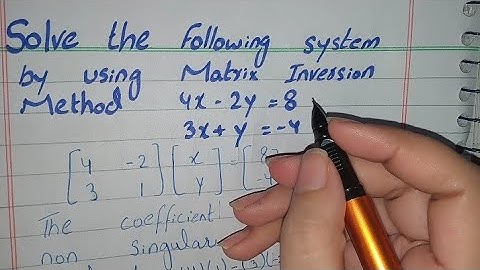 Solve the following system
by using Matrix Inversion
Method 4x - 2y = 8
3x + y = -4
[4 -2
3 1] [x
y] = [8
The coefficient
non singular